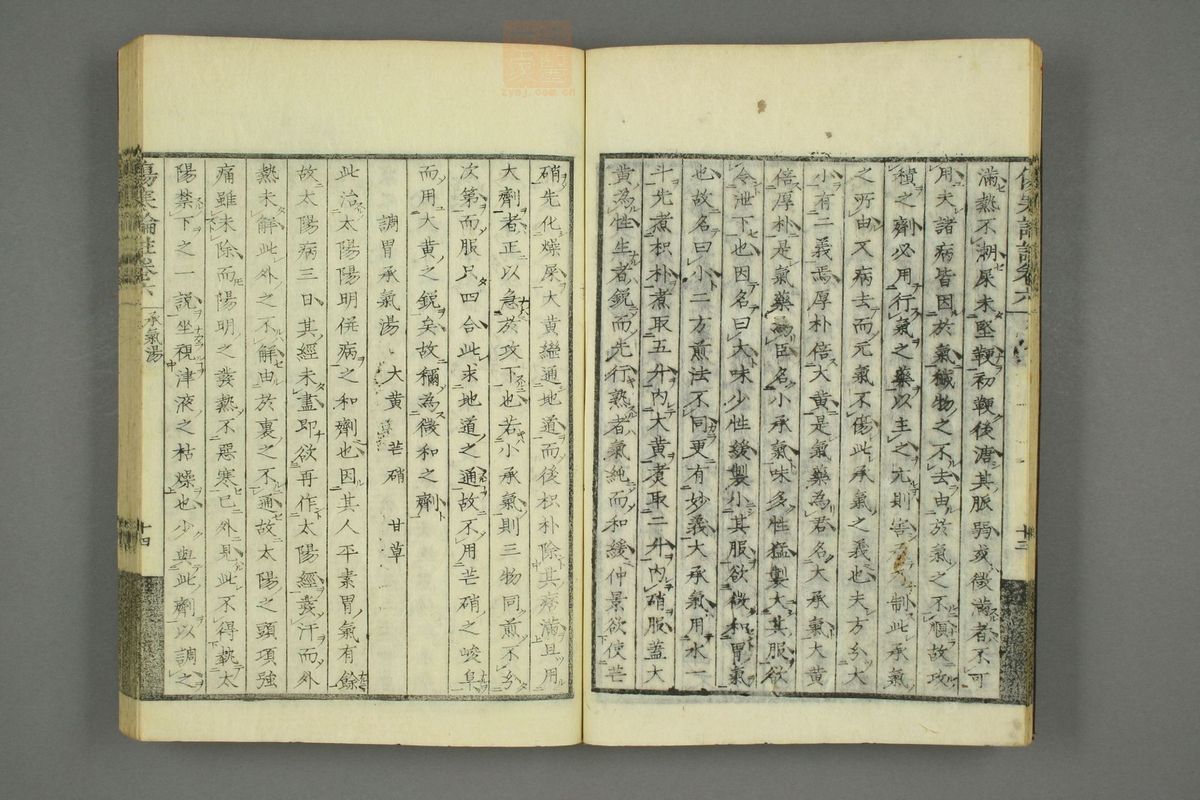 滿熱不潮屎未堅鞕初鞕後溏其脈弱或微濇者不可
用夫諸病皆因於氣穢物之不去由於氣之不順故攻
積之劑必用行氣之藥以主之亢則害 制此承氣
之所由又病去而元氣不傷此承氣之義也夫方分大
小有二義焉厚朴倍大黃是氣藥為君名大承氣大黃
倍厚朴是氣藥為臣名小承氣味多性猛製大其服欲
令泄下也因名曰大味少性緩製小其服欲微和胃氣
也故名曰小二方煎法不同更有妙義大承氣用水一
斗先煮枳朴煮取五升內大黃煮取二升內硝服蓋大
黃為性生者銳而先行熟者氣純而和緩仲景欲使芒
十三
硝先化燥屎大黃繼通地道而後枳朴除其痞滿且用
大劑者正以急於攻下也若小承氣則三物同煎不分
次第而服只四合此求地道之通故不用芒硝之峻阜
而用大黃之銳矣故稱為微和之劑
調胃承氣湯 大黃 芒硝 甘草
此治太陽陽明併病之和劑也因其人平素胃氣有餘
故太陽病三日其經未盡即欲再作太陽經發汗而外
熱未解此外之不解由於裏之不通故太陽之頭項強
痛雖未除而陽明之發熱不惡寒已外見此不得執太
陽禁下之一說坐視津液之枯燥也少與此劑以調之
傷寒論註卷六 承氣湯 十四
zysj.com.cn